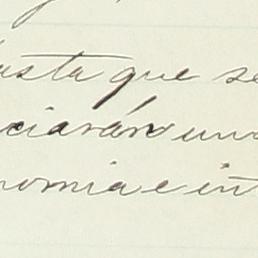 asta que se
ciarán una
nomia e int